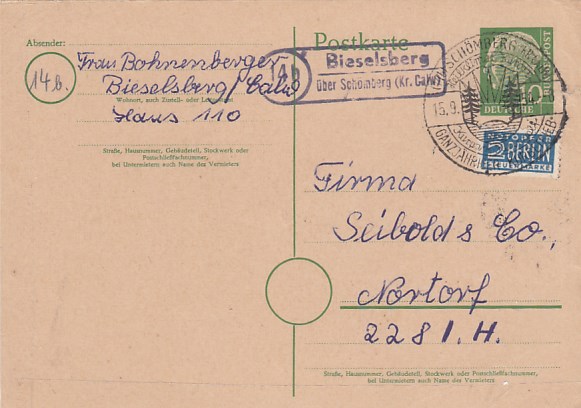 Absender:
14b.
Frau Bohnenberger
Bieselsberg/Calw
Wohnort, auch Zustell- oder Leitpostamt
Haus 110
Straße, Hausnummer, Gebäudeteil, Stockwerk oder
Postschließfachnummer,
bei Untermietern auch Name des Vermieters
Postkarte
14b
Bieselsberg
über Schömberg (Kr. Calw)
SCHÖMBERG
15.9.
GANZJÄHR
10
DEUTSCHE
BUNDESPOST
NOTOPFER
2 BERLIN
STEUERMARKE
Firma
Seibold & Co.,
Nortorf
228 I. H.
Straße, Hausnummer, Gebäudeteil, Stockwerk oder Postschließfachnummer,
bei Untermietern auch Name des Vermieters